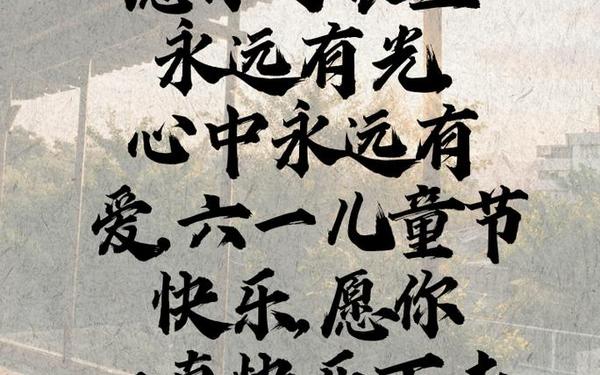 永远有光
心中永远有
爱,六一儿童节
快乐,愿你
快乐下去